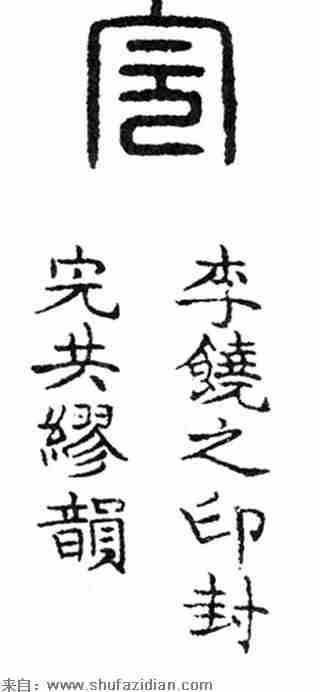 完
李饒之印封
完共繆韻
来自：www.shufazidian.com